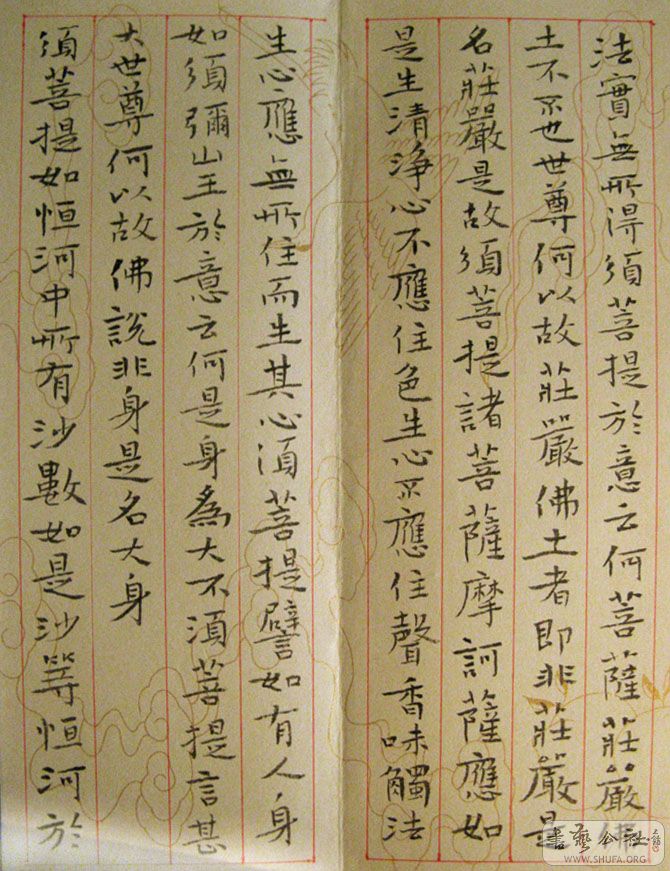 法實無所得須菩提於意云何菩薩莊嚴佛
土不不也世尊何以故莊嚴佛土者即非莊嚴是
名莊嚴是故須菩提諸菩薩摩訶薩應如
是生清淨心不應住色生心不應住聲香味觸法
生心應無所住而生其心須菩提譬如有人身
如須彌山王於意云何是身為大不須菩提言甚
大世尊何以故佛說非身是名大身
須菩提如恒河中所有沙數如是沙等恒河於
書藝公社
WWW.SHUFA.ORG